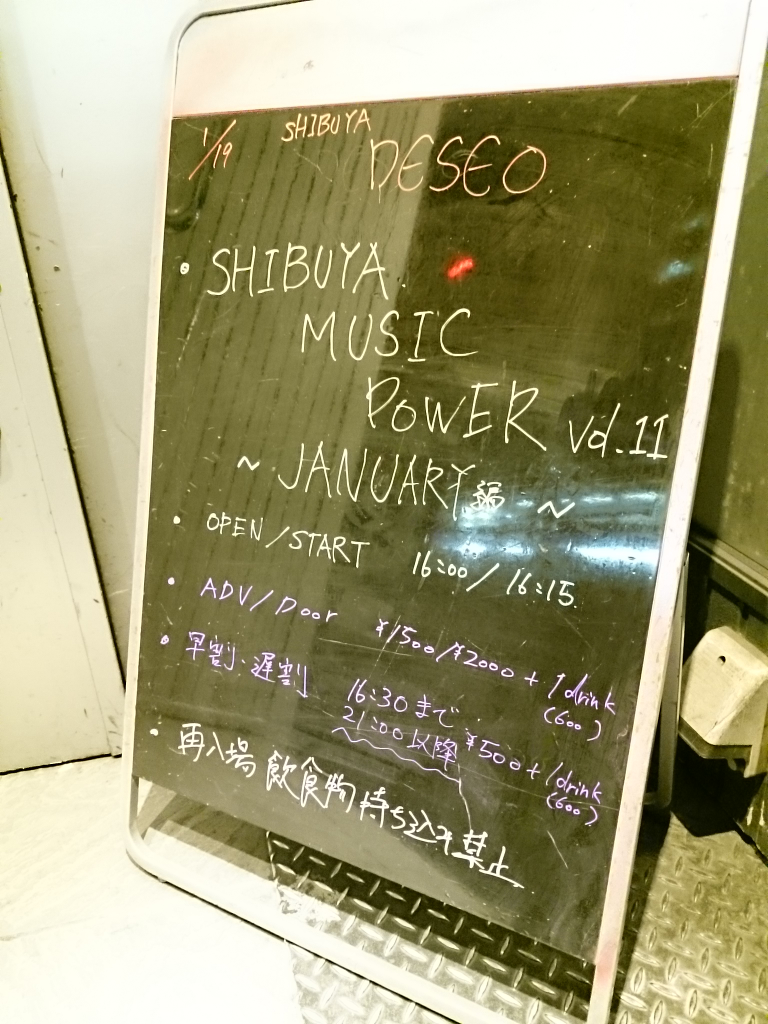 1/19 SHIBUYA
DESEO
• SHIBUYA
MUSIC
POWER vol.11
~ JANUARY編 ~
• OPEN/START 16:00/16:15
• ADV/Door ¥1500/¥2000+1drink
(600)
• 早割・遅割 16:30まで
21:00以降 ¥500+1drink
(600)
• 再入場 飲食物 持ち込み禁止